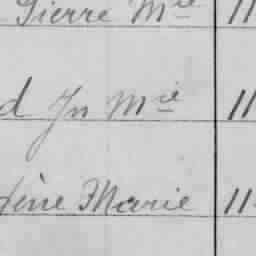 Pierre Mie 11
d Jn Mie 11
Marie 11